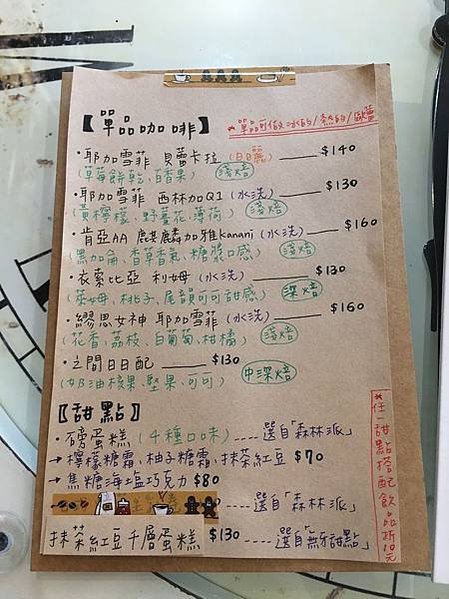 【單品咖啡】 *單品可做冰的/熱的/歐蕾
·耶加雪菲 貝蕾卡拉 (日曬) $140
(草莓餅乾、百香果) 淺焙
·耶加雪菲 西林加Q1 (水洗) $130
(黃檸檬、野薑花、薄荷) 淺焙
·肯亞AA 麒麟加雅kanani (水洗) $160
(黑加侖、香草香氣、糖漿口感) 淺焙
·衣索比亞 利姆 (水洗) $130
(萊姆、桃子、尾韻可可甜感) 深焙
·繆思女神 耶加雪菲 (水洗) $160
(花香、荔枝、白葡萄、柑橘) 淺焙
·之間日日配 $130
(奶油核果、堅果、可可) 中深焙
【甜點】
·磅蛋糕 (4種口味) ---- 選自「森林派」
→檸檬糖霜、柚子糖霜、抹茶紅豆 $70
→焦糖海塩巧克力 $80
---- 選自「森林派」
抹茶紅豆千層蛋糕 $130 ---- 選自「無研甜點」
*任一甜點搭配飲品折10元